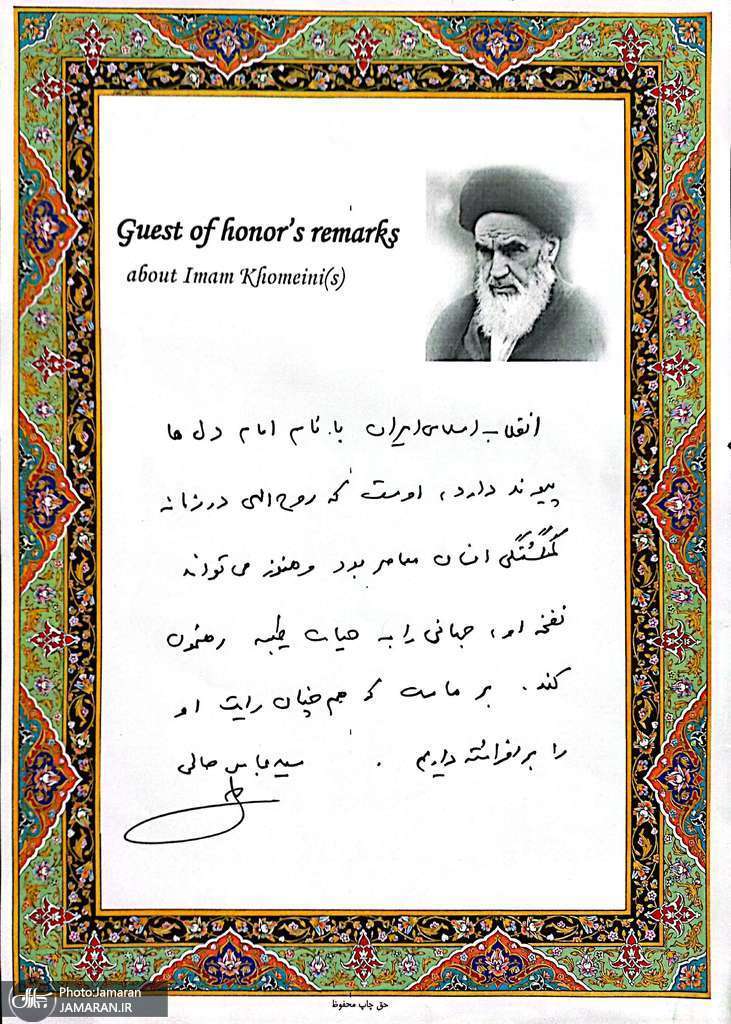 Guest of honor's remarks
about Imam Khomeini(s)
انقلاب اسلامی ایران با نام امام دل ها
پیوند دارد، اوست که روح الهی در زمانه
گمگشتگی انسان معاصر بود و هنوز می تواند
نفخه او، جهانی را به حیات طیبه رهنمون
کند. بر ماست که هم چنان رایت او
را برافراشته داریم.
سید عباس صالحی
Photo:Jamaran
JAMARAN.IR
جماران
حق چاپ محفوظ